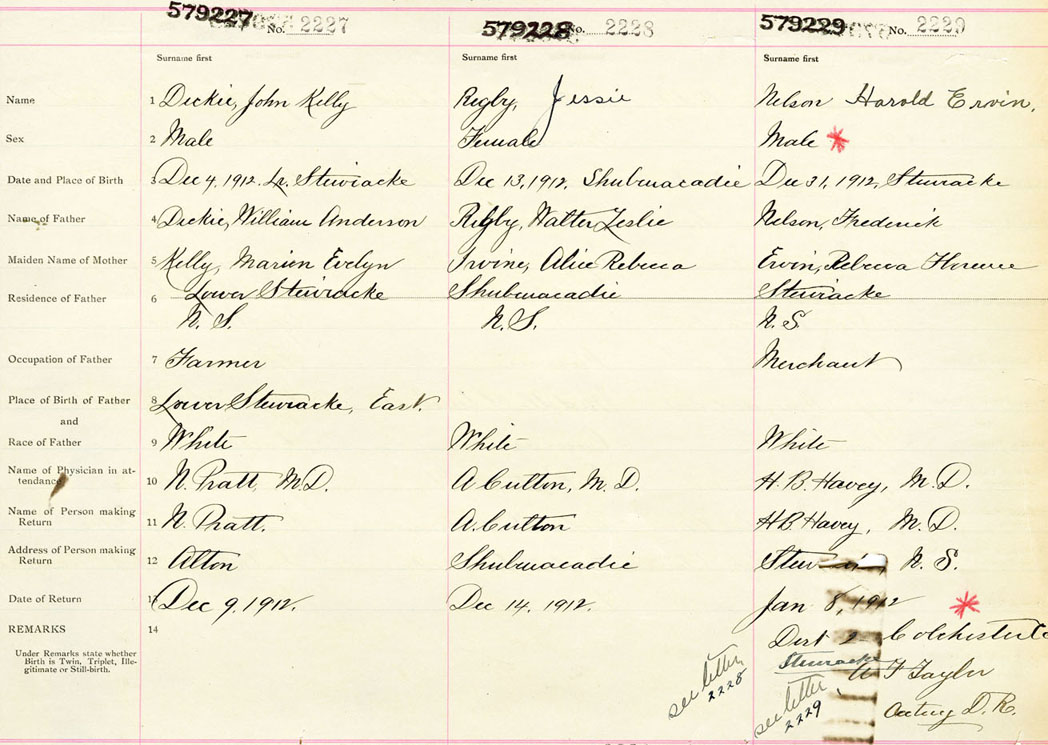 579227 No. 2227 579228 No. 2228 579229 No. 2229
Surname first Surname first Surname first
Name 1 Dickie, John Kelly Rigby, Jessie Nelson Harold Ervin.
Sex 2 Male Female Male *
Date and Place of Birth 3 Dec 4, 1912. Lr. Stewiacke Dec 13, 1912, Shubenacadie Dec 31, 1912, Stewiacke
Name of Father 4 Dickie, William Anderson Rigby, Walter Leslie Nelson, Frederick
Maiden Name of Mother 5 Kelly, Marion Evelyn Irvine, Alice Rebecca Ervin, Rebecca Florence
Residence of Father 6 Lower Stewiacke Shubenacadie Stewiacke
N. S. N. S. N. S
Occupation of Father 7 Farmer Merchant
Place of Birth of Father 8 Lower Stewiacke, East.
and
Race of Father 9 White White White
Name of Physician in at-
tendance 10 N. Pratt, M.D. A Cutton, M. D. H. B. Havey, M. D.
Name of Person making
Return 11 N. Pratt. A. Cutton H B Havey, M. D.
Address of Person making
Return 12 Alton Shubenacadie N. S.
Date of Return 13 Dec 9, 1912. Dec 14, 1912. Jan 8, 1912 *
REMARKS 14 Dist 2 Colchester
Under Remarks state whether
Birth is Twin, Triplet, Ille-
gitimate or Still-birth.
Stewiacke
F Taylor
Acting D. R.
see letter
2228
see letter
2229